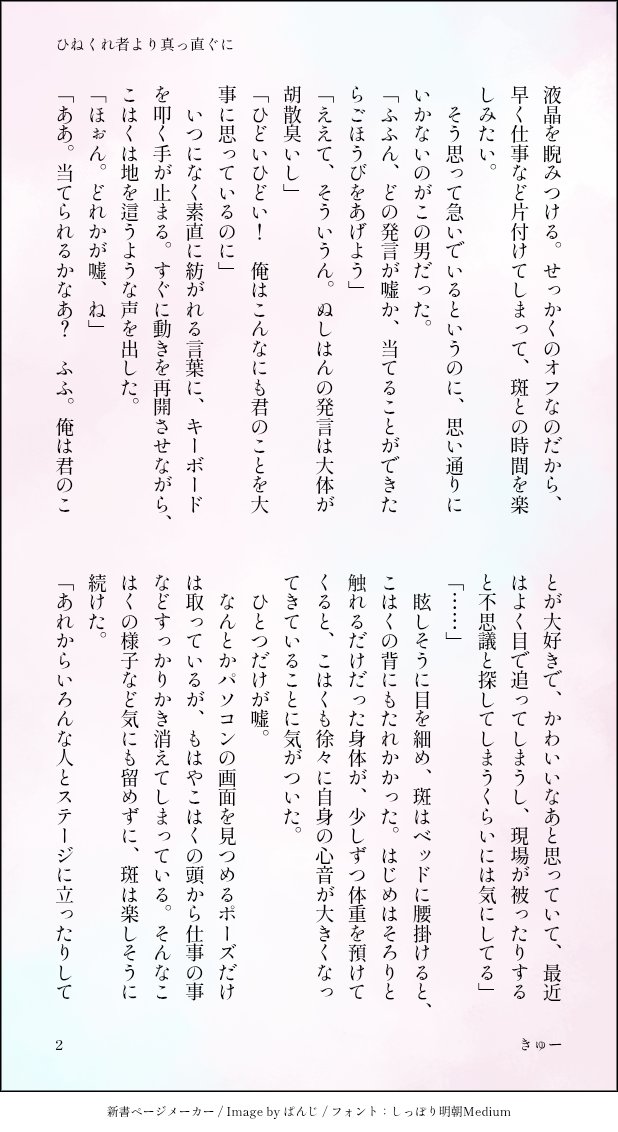 ひねくれ者より真っ直ぐに
液晶を睨みつける。せっかくのオフなのだから、
早く仕事など片付けてしまって、斑との時間を楽
しみたい。
　そう思って急いでいるというのに、思い通りに
いかないのがこの男だった。
「ふふん、どの発言が嘘か、当てることができた
らごほうびをあげよう」
「ええて、そういうん。ぬしはんの発言は大体が
胡散臭いし」
「ひどいひどい！　俺はこんなにも君のことを大
事に思っているのに」
　いつになく素直に紡がれる言葉に、キーボード
を叩く手が止まる。すぐに動きを再開させながら、
こはくは地を這うような声を出した。
「ほぉん。どれかが嘘、ね」
「ああ。当てられるかなあ？　ふふ。俺は君のこ
とが大好きで、かわいいなあと思っていて、最近
はよく目で追ってしまうし、現場が被ったりする
と不思議と探してしまうくらいには気にしてる」
「……」
　眩しそうに目を細め、斑はベッドに腰掛けると、
こはくの背にもたれかかった。はじめはそろりと
触れるだけだった身体が、少しずつ体重を預けて
くると、こはくも徐々に自身の心音が大きくなっ
てきていることに気がついた。
　ひとつだけが嘘。
　なんとかパソコンの画面を見つめるポーズだけ
は取っているが、もはやこはくの頭から仕事の事
などすっかりかき消えてしまっている。そんなこ
はくの様子など気にも留めずに、斑は楽しそうに
続けた。
「あれからいろんな人とステージに立ったりして
きゅー
2
新書ページメーカー / Image by ぱんじ / フォント：しっぽり明朝Medium